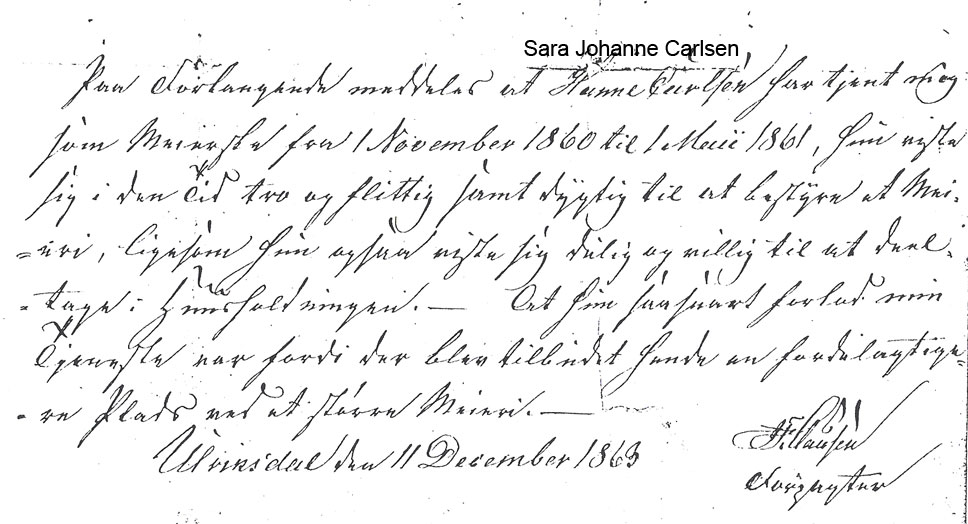 Sara Johanne Carlsen
Paa Forlangende meddeles at Hanne Carlsen har tjent mig
som Meierske fra 1 November 1860 til 1 Maii 1861, hun viste
sig i den Tid tro og flittig samt dygtig til at bestyre et Mei-
=eri, ligesom hun ogsaa viste sig dulig og villig til at deel-
-tage i Huusholdningen. — At hun saasnart forlod min
Tjeneste var fordi der blev tilbudet hende en fordelagtige-
-re Plads ved et større Meieri. —
den 11 December 1863
Clausen
Forpagter